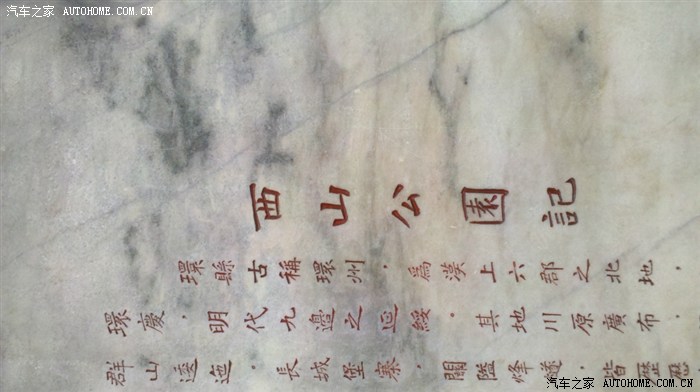 汽车之家 AUTOHOME.COM.CN
西山公園記
環縣古稱環州，為漢上六郡之北地，
環慶，明代九邊之延綏。其地川原廣布，
群山逶迤，長城堡寨，關隘烽燧，皆歷
汽车之家 AUTOHOME.COM.CN